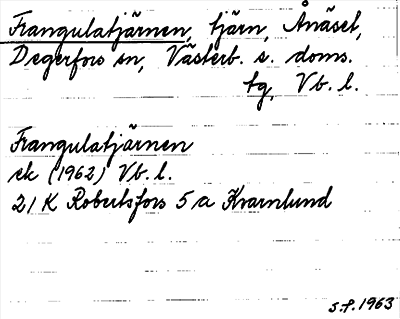 Frangulatjärnen, tjärn, Ånäset,
Degerfors sn, Västerb. s. doms.
tg, Vb. l.
Frangulatjärnen
ek (1962) Vb. l.
21 K Robertsfors 5 a Kvarnlund
S.P. 1963